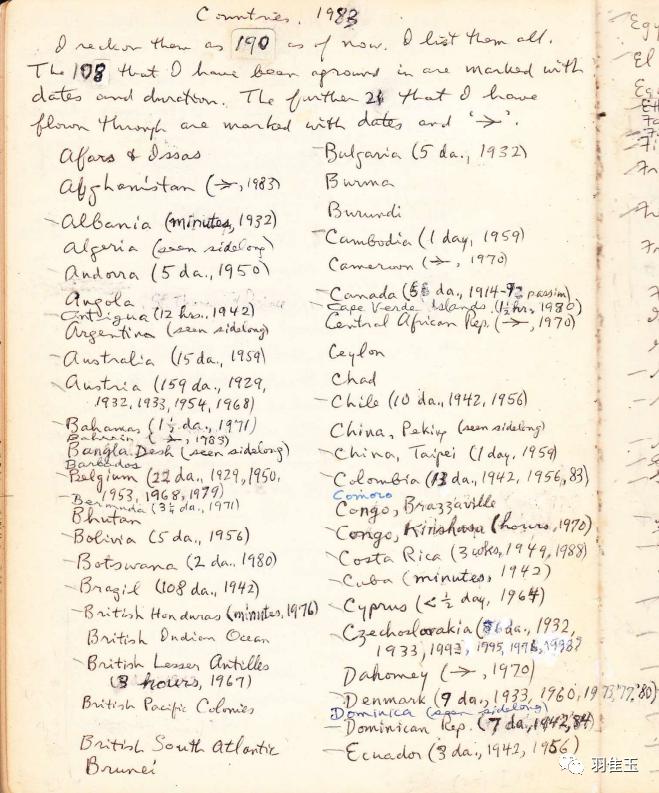 Countries, 1983
I reckon them as 190 as of now. I list them all.
The 108 that I have been aground in are marked with
dates and duration. The further 21 that I have
flown through are marked with dates and '→'.
Afars & Issas
Afghanistan (→, 1983)
Albania (minutes, 1932)
Algeria (seen sidelong)
Andorra (5 da., 1950)
Angola
Antigua (12 hrs., 1942)
Argentina (seen sidelong)
Australia (15 da., 1959)
Austria (159 da., 1929,
1932, 1933, 1954, 1968)
Bahamas (1½ da., 1971)
Bahrain (→, 1983)
Bangla Desh (seen sidelong)
Barbados
Belgium (22 da., 1929, 1950,
1953, 1968, 1979)
Bermuda (3½ da., 1971)
Bhutan
Bolivia (5 da., 1956)
Botswana (2 da., 1980)
Brazil (108 da., 1942)
British Honduras (minutes, 1976)
British Indian Ocean
British Lesser Antilles
(3 hours, 1967)
British Pacific Colonies
British South Atlantic
Brunei
Bulgaria (5 da., 1932)
Burma
Burundi
Cambodia (1 day, 1959)
Cameroun (→, 1970)
Canada (da., 1914- passim)
Cape Verde Islands (1½ hr, 1980)
Central African Rep. (→, 1970)
Ceylon
Chad
Chile (10 da., 1942, 1956)
China, Peking (seen sidelong)
China, Taipei (1 day, 1959)
Colombia (13 da., 1942, 1956, 83)
Comoro
Congo, Brazzaville
Congo, Kinshasa (hours, 1970)
Costa Rica (3 wks, 1949, 1988)
Cuba (minutes, 1942)
Cyprus (<½ day, 1964)
Czechoslovakia (da., 1932,
1933, 1993, 1995,
Dahomey (→, 1970)
Denmark (9 da., 1933, 1960, 1973, '77, '80)
Dominica (seen sidelong)
Dominican Rep. (7 da., 1942, 84)
Ecuador (3 da., 1942, 1956)
Egy
El
羽佳玉